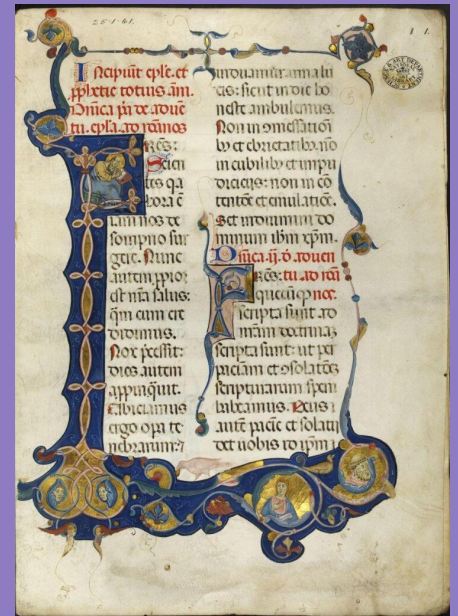 Incipiunt eple. et
pphetie totius ãni.
Dnica pa de aduẽ
tu. epła. ad romãos
Fres:
Scien
tes qa
hora ẽ
iam nos de
sompno sur
gere. Nunc
autem ppior
est nra salus:
qm cum cre
didimus.
Nox pcessit:
dies autem
appinquit.
Abiciamus
ergo opa te
nebrarum:
induamur arma lu
cis: sicut in die ho
neste ambulemus.
Non in comessatioi
by et ebrietatiby. nõ
in cubiliby et impu
diciciis: non in cõ
tentõe et emulatiõe.
Set induimini do
minum ihm xpm.
Dnica. ij. d. aduen
tu. ad rom
Fres:
quecũq
scripta sunt ad
nram doctrinaz
scripta sunt: ut per
paciam et consolatõez
scripturarum spem
habeamus. Deus
autẽ pacie et solatii
det uobis id ipm
26·1·61.